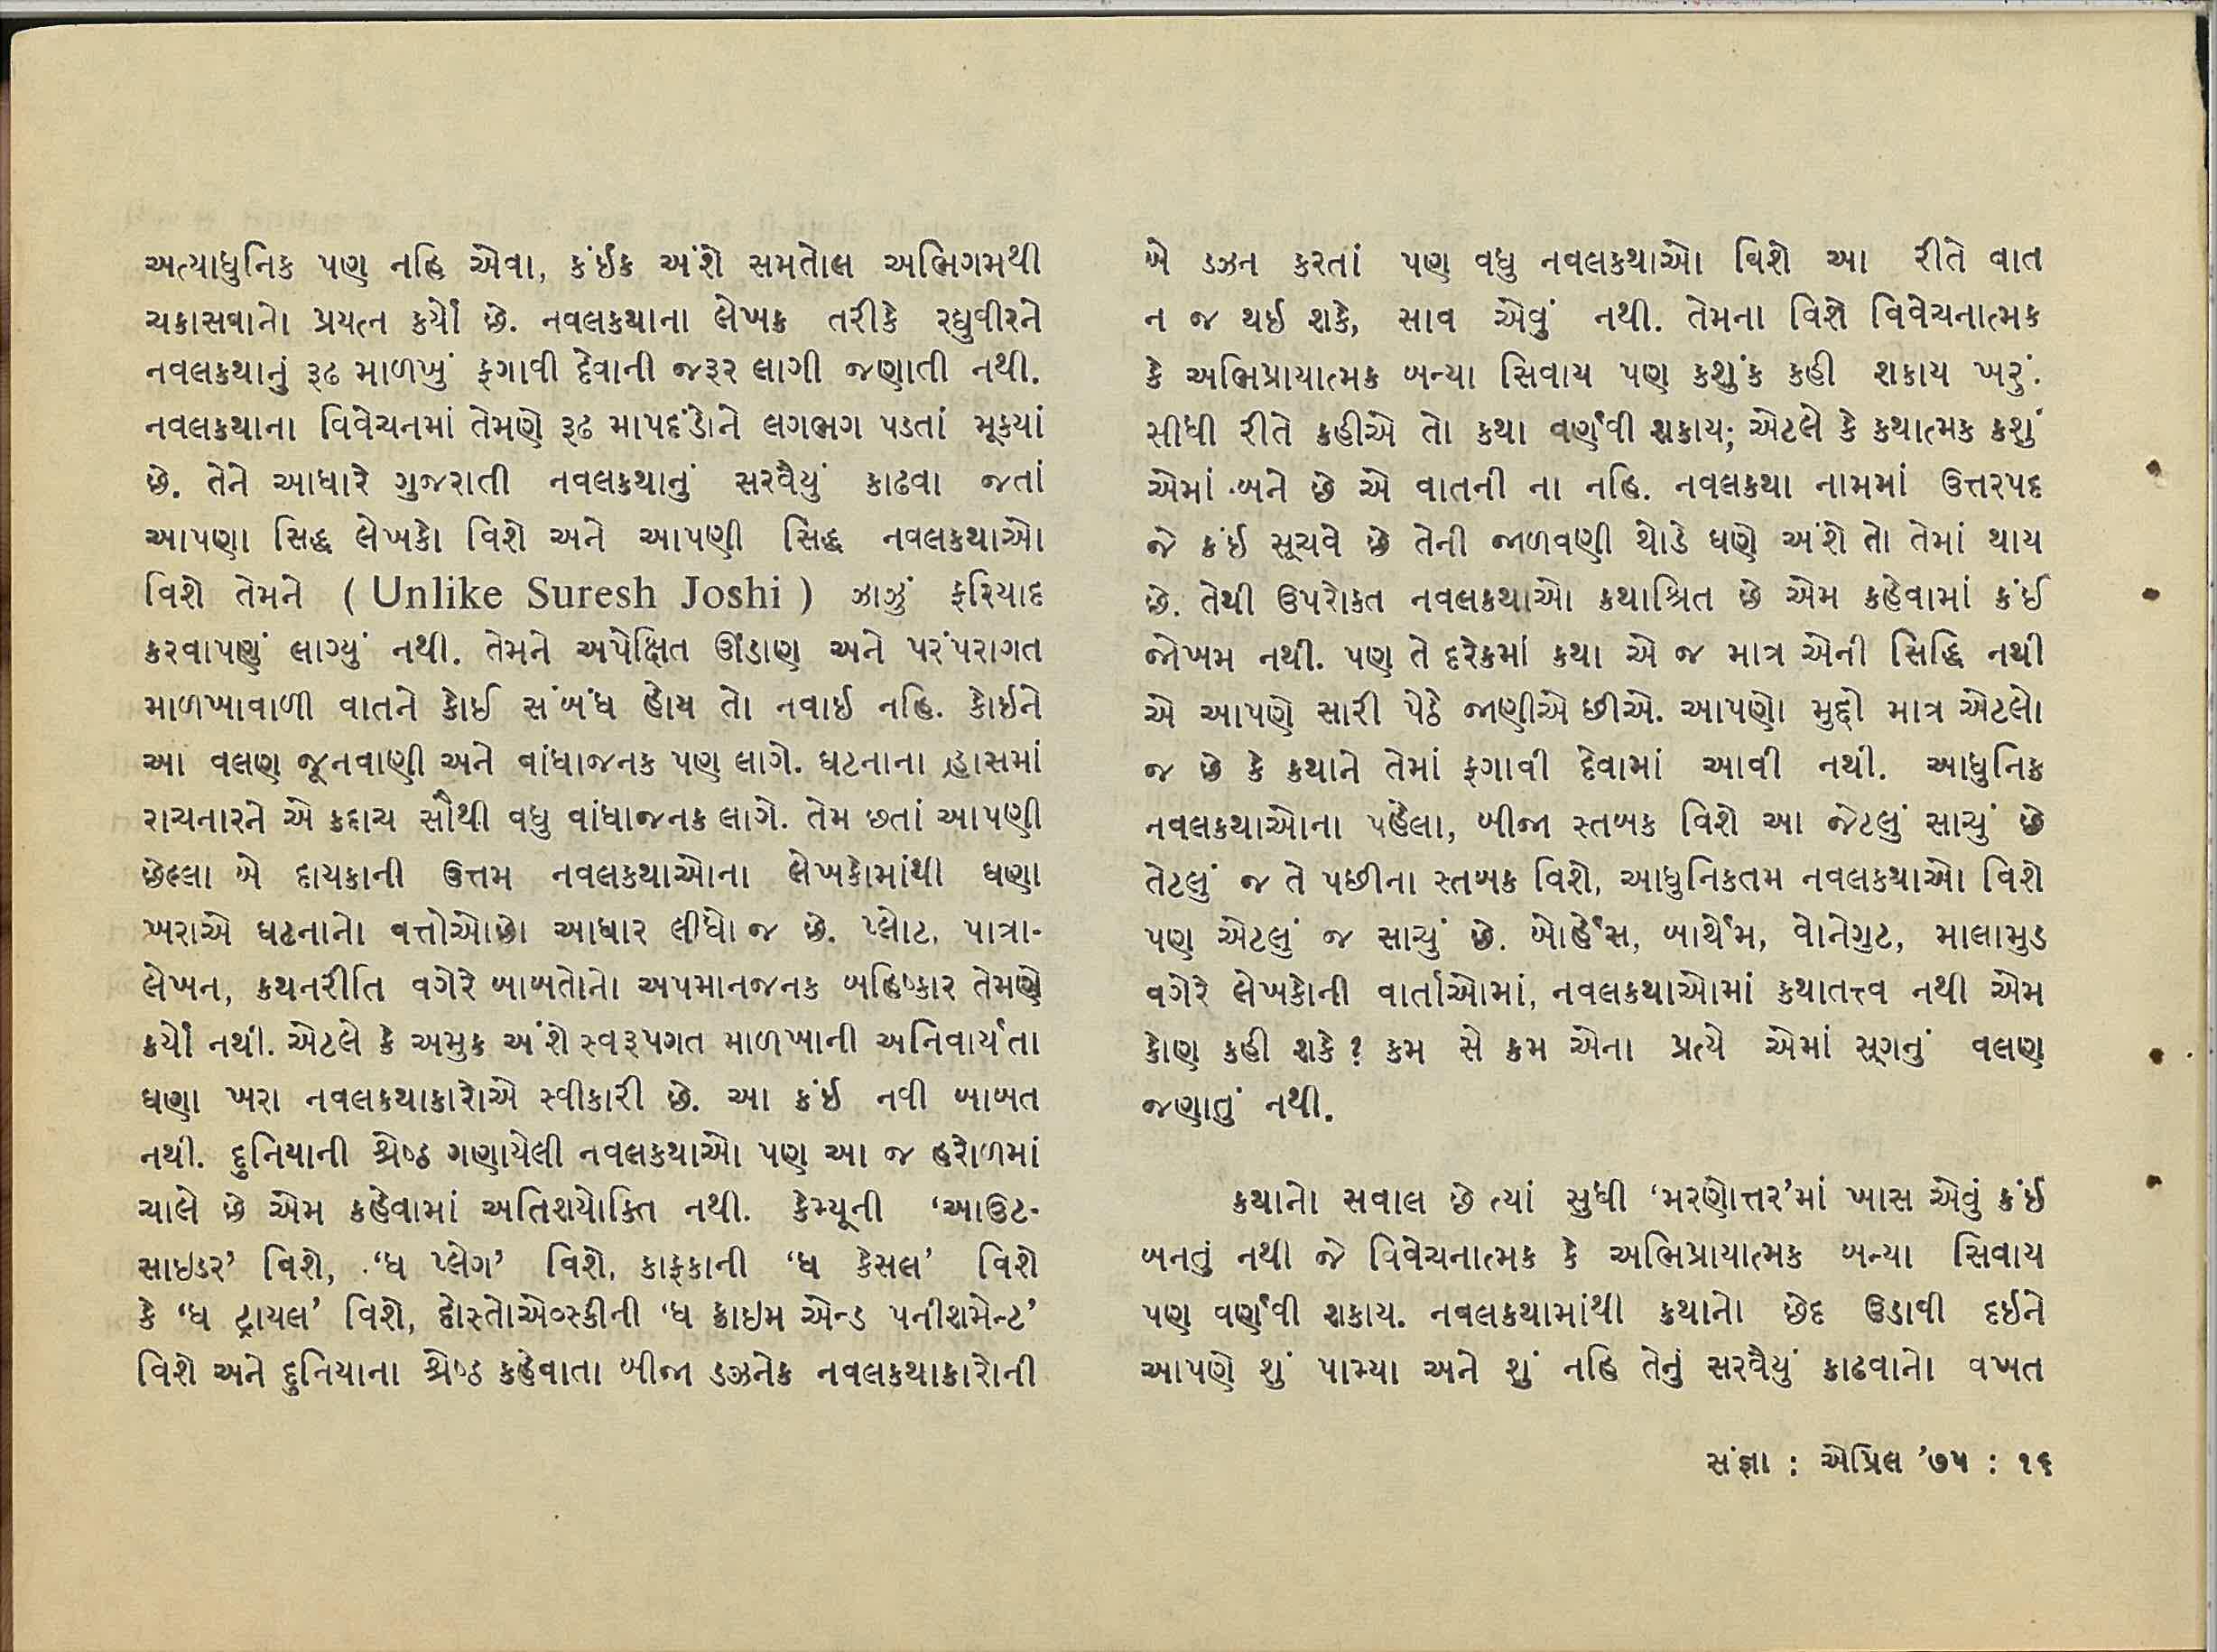 અત્યાધુનિક પણ નહિ એવા, કંઈક અંશે સમતોલ અભિગમથી
ચકાસવાનો પ્રયત્ન કર્યો છે. નવલકથાના લેખક તરીકે રઘુવીરને
નવલકથાનું રૂઢ માળખું ફગાવી દેવાની જરૂર લાગી જણાતી નથી.
નવલકથાના વિવેચનમાં તેમણે રૂઢ માપદંડોને લગભગ પડતાં મૂક્યાં
છે. તેને આધારે ગુજરાતી નવલકથાનું સરવૈયું કાઢવા જતાં
આપણા સિદ્ધ લેખકો વિશે અને આપણી સિદ્ધ નવલકથાઓ
વિશે તેમને ( Unlike Suresh Joshi ) ઝાઝું ફરિયાદ
કરવાપણું લાગ્યું નથી. તેમને અપેક્ષિત ઊંડાણ અને પરંપરાગત
માળખાવાળી વાતને કોઈ સંબંધ હોય તો નવાઈ નહિ. કોઇને
આ વલણ જૂનવાણી અને વાંધાજનક પણ લાગે. ઘટનાના હ્રાસમાં
રાચનારને એ કદાચ સૌથી વધુ વાંધાજનક લાગે. તેમ છતાં આપણી
છેલ્લા બે દાયકાની ઉત્તમ નવલકથાઓના લેખકોમાંથી ઘણા
ખરાએ ઘટનાનો વત્તોઓછો આધાર લીધો જ છે. પ્લોટ, પાત્રા-
લેખન, કથનરીતિ વગેરે બાબતોનો અપમાનજનક બહિષ્કાર તેમણે
કર્યો નથી. એટલે કે અમુક અંશે સ્વરૂપગત માળખાની અનિવાર્યતા
ઘણા ખરા નવલકથાકારોએ સ્વીકારી છે. આ કંઈ નવી બાબત
નથી. દુનિયાની શ્રેષ્ઠ ગણાયેલી નવલકથાઓ પણ આ જ હરોળમાં
ચાલે છે એમ કહેવામાં અતિશયોક્તિ નથી. કેમ્યૂની ‘આઉટ-
સાઇડર’ વિશે, ‘ધ પ્લેગ’ વિશે, કાફકાની ‘ધ કેસલ’ વિશે
કે ‘ધ ટ્રાયલ’ વિશે, દોસ્તોએવ્સ્કીની ‘ધ ક્રાઇમ એન્ડ પનીશમેન્ટ’
વિશે અને દુનિયાના શ્રેષ્ઠ કહેવાતા બીજા ડઝનેક નવલકથાકારોની
બે ડઝન કરતાં પણ વધુ નવલકથાઓ વિશે આ રીતે વાત
ન જ થઈ શકે, સાવ એવું નથી. તેમના વિશે વિવેચનાત્મક
કે અભિપ્રાયાત્મક બન્યા સિવાય પણ કશુંક કહી શકાય ખરું.
સીધી રીતે કહીએ તો કથા વર્ણવી શકાય; એટલે કે કથાત્મક કશું
એમાં બને છે એ વાતની ના નહિ. નવલકથા નામમાં ઉત્તરપદ
જે કંઈ સૂચવે છે તેની જાળવણી થોડે ઘણે અંશે તો તેમાં થાય
છે. તેથી ઉપરોક્ત નવલકથાઓ કથાશ્રિત છે એમ કહેવામાં કંઈ
જોખમ નથી. પણ તે દરેકમાં કથા એ જ માત્ર એની સિદ્ધિ નથી
એ આપણે સારી પેઠે જાણીએ છીએ. આપણો મુદ્દો માત્ર એટલો
જ છે કે કથાને તેમાં ફગાવી દેવામાં આવી નથી. આધુનિક
નવલકથાઓના પહેલા, બીજા સ્તબક વિશે આ જેટલું સાચું છે
તેટલું જ તે પછીના સ્તબક વિશે, આધુનિકતમ નવલકથાઓ વિશે
પણ એટલું જ સાચું છે. બોર્હેસ, બાર્થેમ, વોનેગુટ, માલામુડ
વગેરે લેખકોની વાર્તાઓમાં, નવલકથાઓમાં કથાતત્ત્વ નથી એમ
કોણ કહી શકે? કમ સે કમ એના પ્રત્યે એમાં સૂગનું વલણ
જણાતું નથી.
કથાનો સવાલ છે ત્યાં સુધી ‘મરણોત્તર’માં ખાસ એવું કંઈ
બનતું નથી જે વિવેચનાત્મક કે અભિપ્રાયાત્મક બન્યા સિવાય
પણ વર્ણવી શકાય. નવલકથામાંથી કથાનો છેદ ઉડાવી દઇને
આપણે શું પામ્યા અને શું નહિ તેનું સરવૈયું કાઢવાનો વખત
સંજ્ઞા : એપ્રિલ ’૭૫ : ૧૬